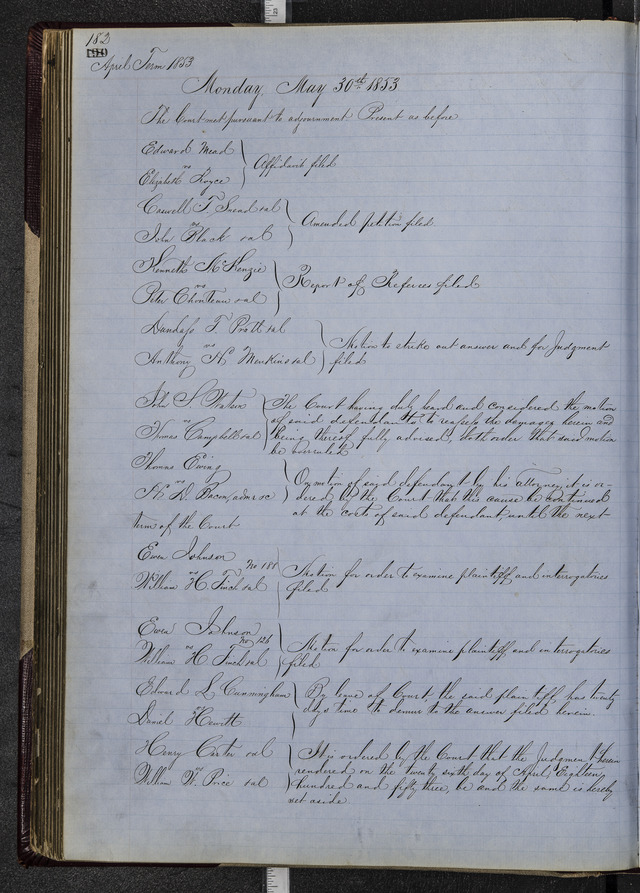 182
199
April Term 1853
Monday, May 30th 1853
The Court met pursuant to adjournment Present as before
Edward Mead
vs
Elizabeth Royce
Affidavit filed
Caswell T Snead et al
vs
John Black et al
Amended petition filed
Kenneth McKenzie
vs
Peter Chouteau et al
Report of Referees filed
T Pratt et al
vs
Anthony W et al
Motion to strike out answer and for Judgment
filed
John S. Watson
vs
Thomas Campbell et al
The Court having duly heard and considered the motion
of said defendant to reassess the damages herein and
being thereof fully advised, doth order that said motion
be overruled
Thomas Ewing
vs
H. D. Bacon, admr &c
On motion of said defendant by his attorney, it is or-
dered by the Court that this cause be continued
at the cost of said defendant, until the next
term of the Court
Ewen Johnson
vs No 188
William H. Finch et al
Motion for order to examine plaintiff and interrogatories
filed
Ewen Johnson
vs No 126
William H. Finch et al
Motion for order to examine plaintiff and interrogatories
filed
Edward L Cunningham
vs
Daniel Hewett
By leave of Court, the said plaintiff, has twenty
days time to demur to the answer filed herein.
Henry Carter et al
vs
William W. Price et al
It is ordered by the Court that the Judgment herein
rendered on the twenty sixth day of April, Eighteen
hundred and fifty three, be and the same is hereby
set aside